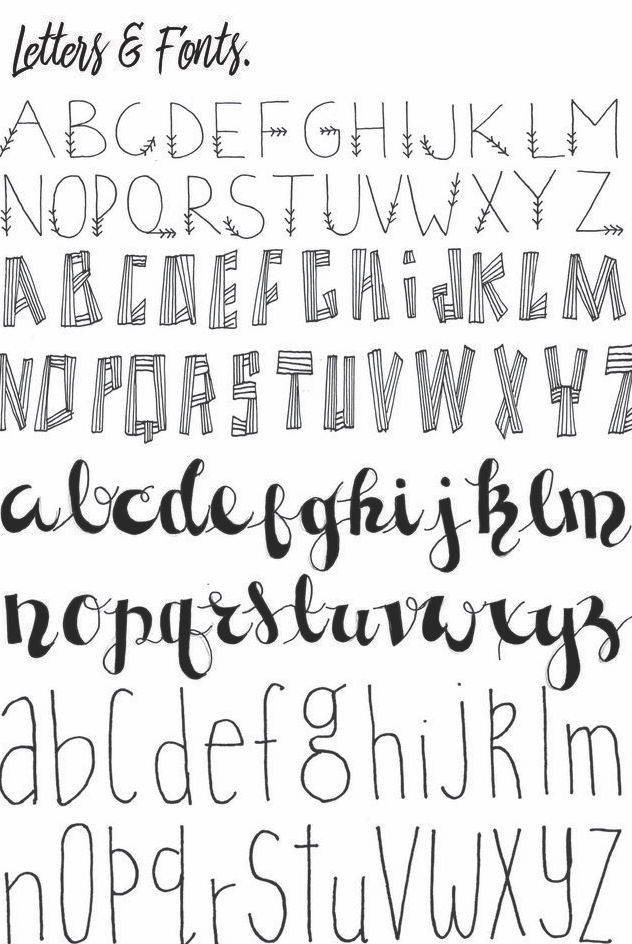 Letters & Fonts.
ABCDEFGHIJKLM
NOPQRSTUVWXYZ
ABCDEFGHiJKLM
NOPQRSTUVWXYZ
abcdefghijklm
nopqrstuvwxyz
abcdefghijklm
nopqrstuvwxyz